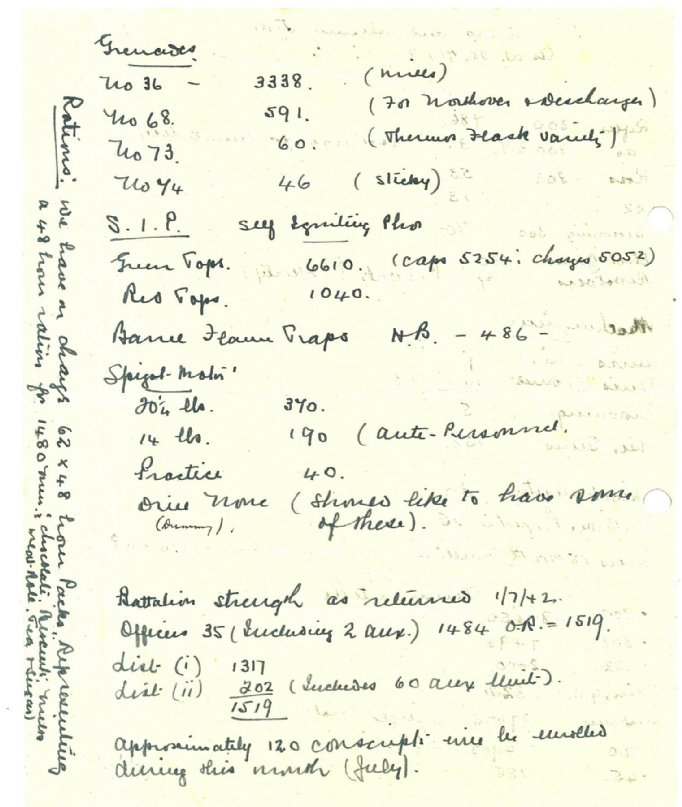 Grenades
No 36 - 3338. (mills)
No 68. 591. (For Northover & Descharger)
No 73. 60. (Thermos Flask variety)
No 74 46 (sticky)
S.I.P. self Igniting Phos
Green Tops. 6610. (caps 5254: charges 5052)
Red Tops. 1040.
Barrel Flame Traps N.B. - 486 -
Spigot-Motor'
20¼ lbs. 370.
14 lbs. 190 (ante-Personnel.
Practice 40.
Drill None (Should like to have some
(Dummy). of these).
Battalion strength as returned 1/7/42.
Officers 35 (Including 2 aux.) 1484 O.R. = 1519.
List (i) 1317
List (ii) 202 (Includes 60 aux Unit).
1519
approximately 120 conscripts will be enrolled
during this month (July).
Rations: We have on charge 62 x 48 hour Packs. Representing
a 48 hour ration for 1480 men: chocolate Biscuits
meat Role, Tea & Sugar)